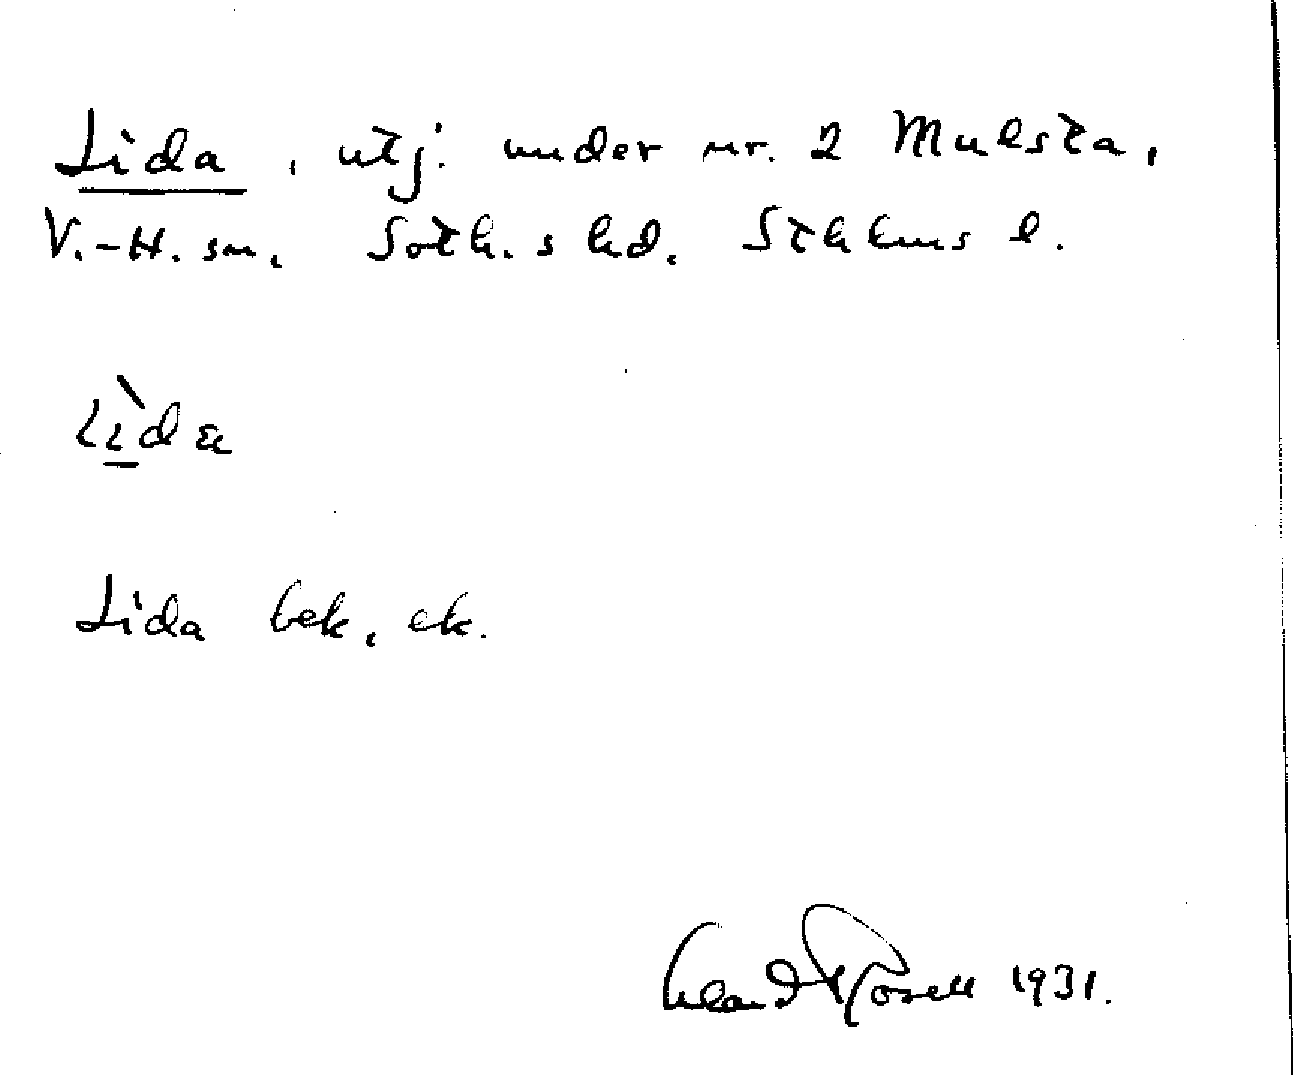 Lida, utj. under nr. 2 Mulsta,
V.-H. sn, Soth.s hd. Sthlms l.
Lìda
Lida bek, ek.
Erland Rosell 1931.